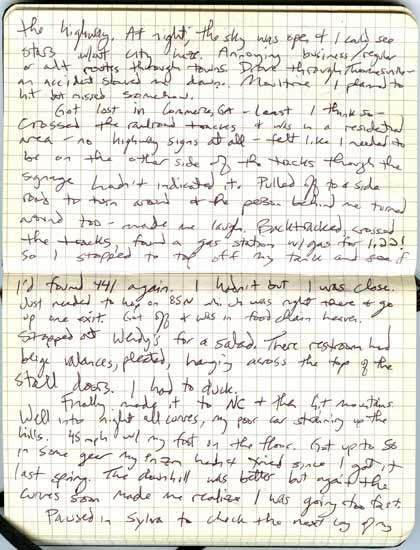 the highway. At night, the sky was open & I could see
stars w/out city haze. Annoying business/regular
or alt routes through towns. Drove through Thomasville
an accident slowed me down. Moultrie I planned to
hit but missed somehow.
Got lost in Commerce, GA - least I think so -
Crossed the railroad tracks & was in a residential
area - no highway signs at all - felt like I needed to
be on the other side of the tracks though the
signage hadn't indicated it. Pulled off to a side
road to turn around & the person behind me turned
around too - made me laugh. Backtracked, crossed
the tracks, found a gas station w/ gas for 1.22!
So I stopped to top off my tank and see if
I'd found 441 again. I hadn't but I was close.
Just needed to hop on 85N which was right there & go
up one exit. Got off & was in food chain heaven.
Stopped at Wendy's for a salad. There restroom had
beige valances, pleated, hanging across the top of the
stall doors. I had to duck.
Finally made it to NC & then hit mountains
Well into night all curves, my poor car straining up the
hills. 45mph w/ my foot on the floor. Got up to 50
in some gear my hadn't tried since I got it
last spring. The downhill was better but again the
curves soon made me realize I was going too fast.
Paused in Sylva to check the next leg of my